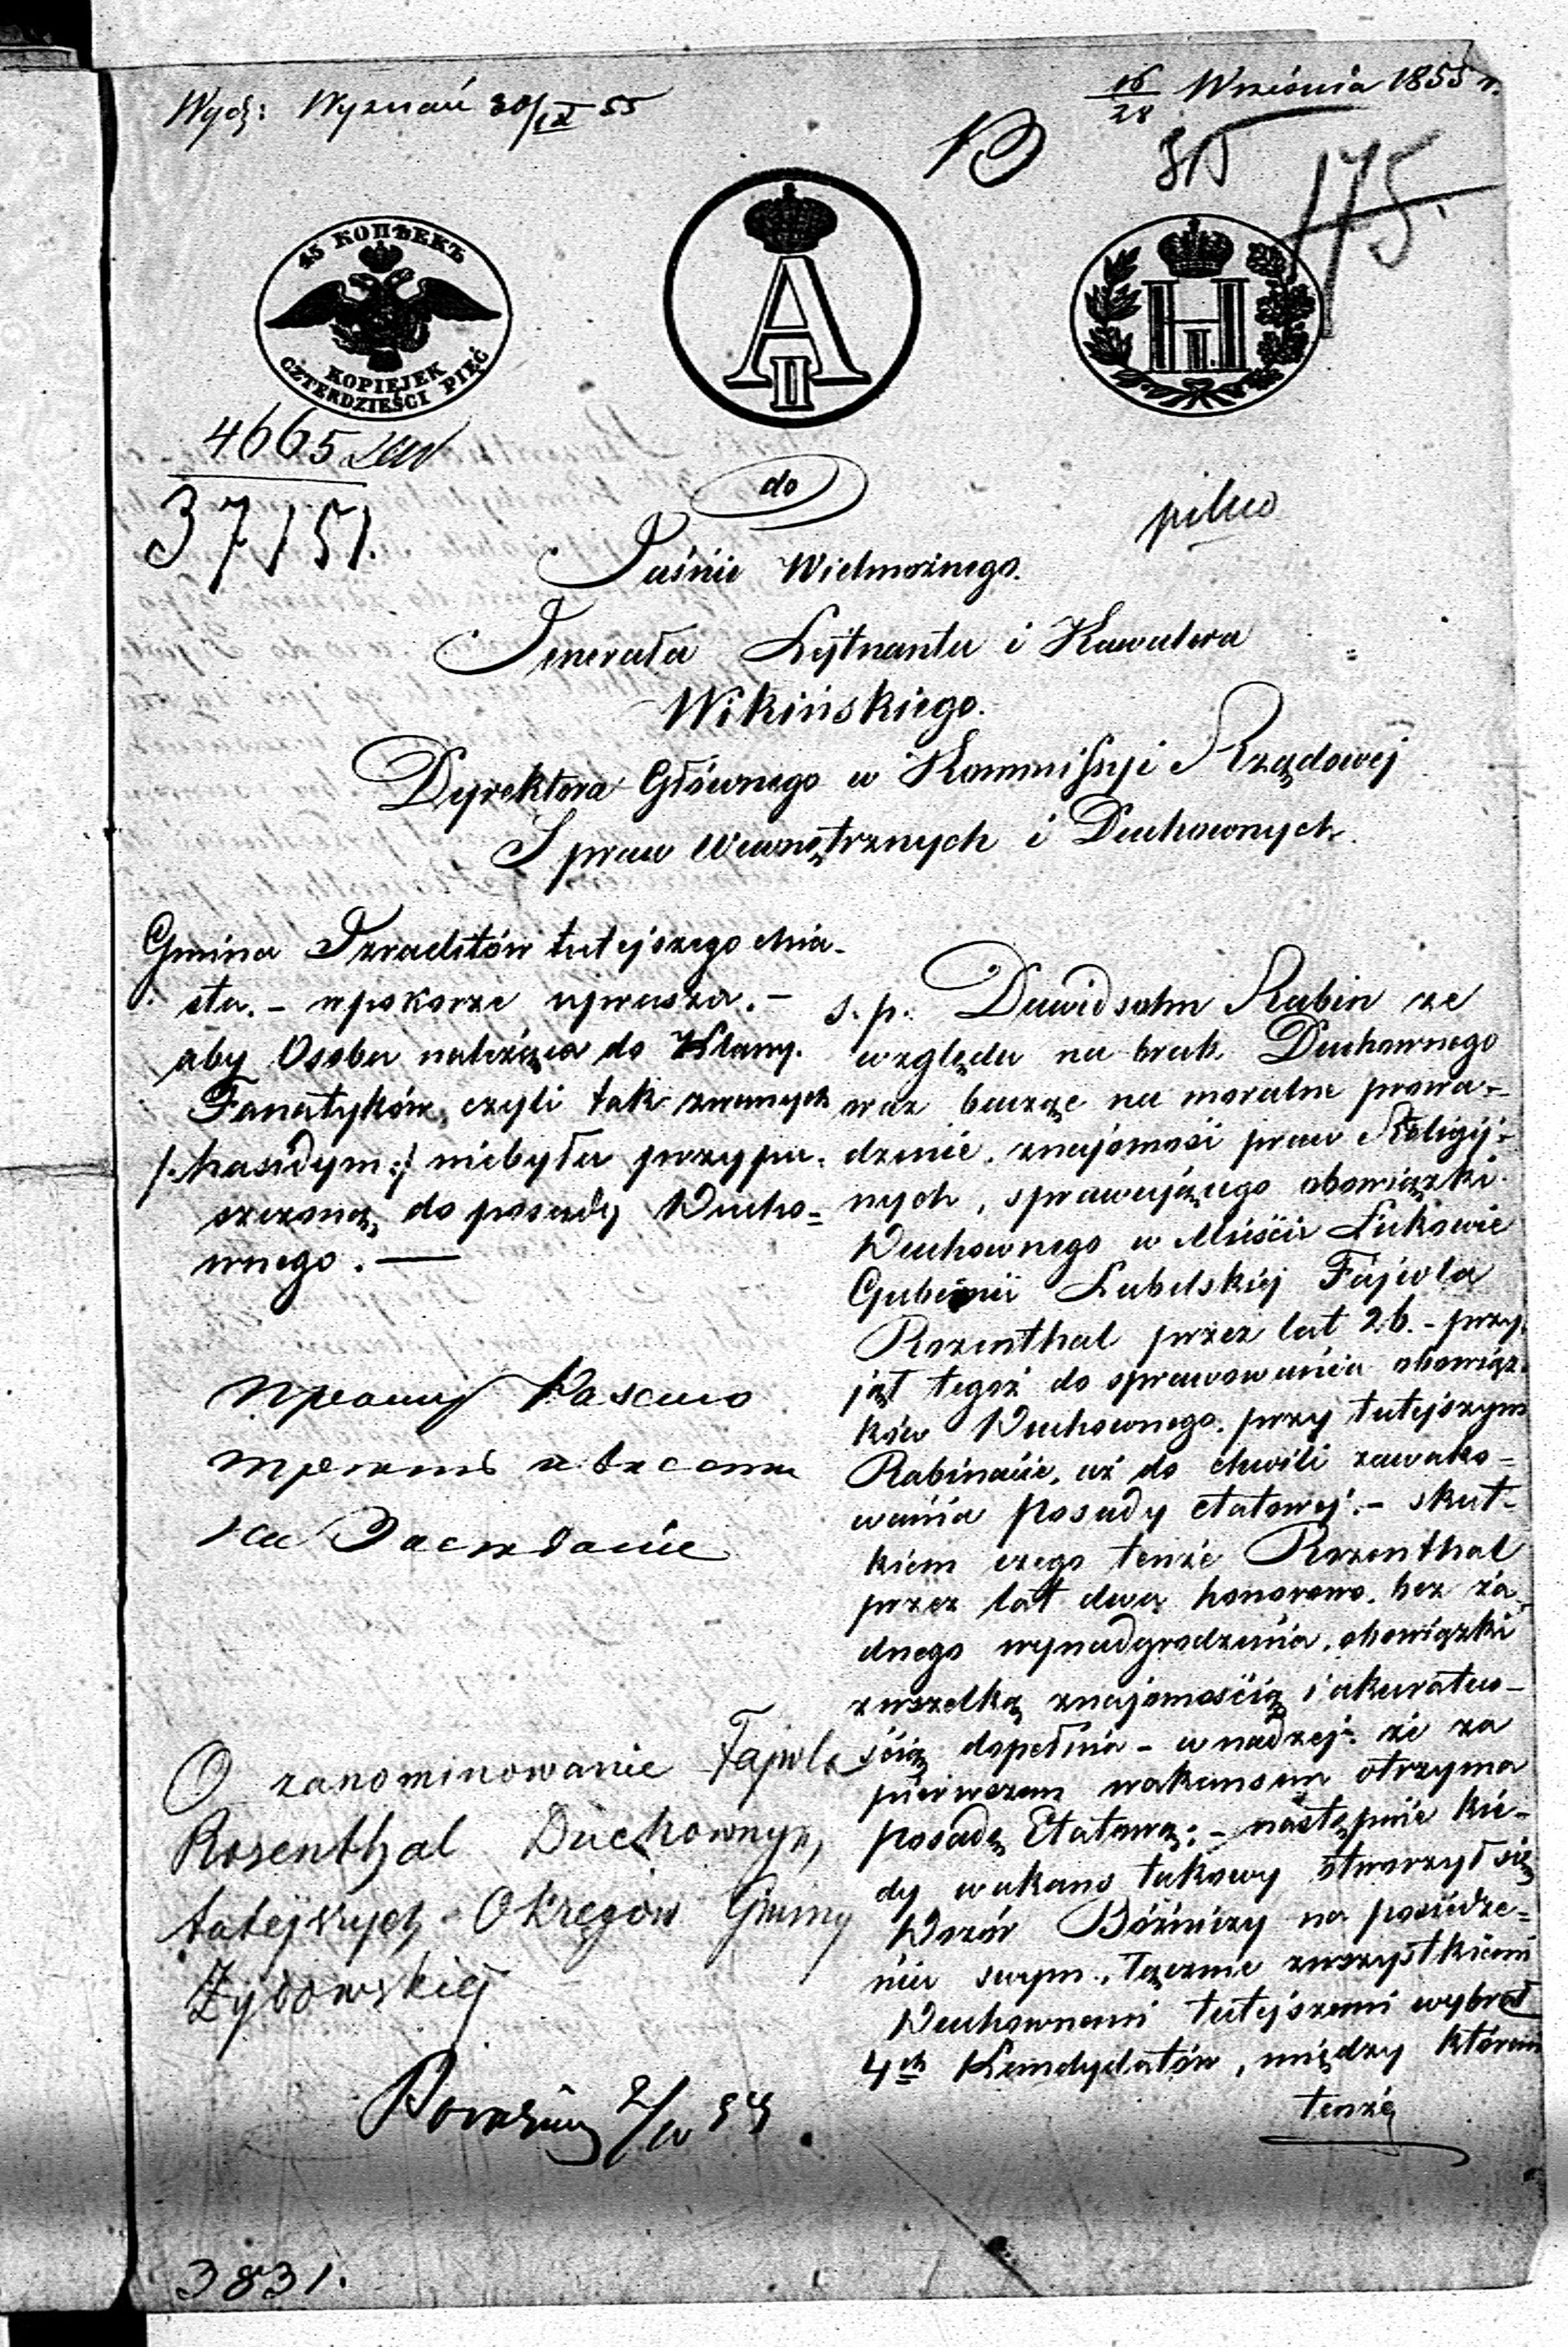 Wydz: Wyznań 30/IX 55
16/28 Września 1855 r.
175.
45 КОПѢЕКЪ
KOPIEJEK
CZTERDZIEŚCI PIĘĆ
A II
H I
4665
37151.
do
pilno
Jaśnie Wielmożnego.
Jenerała Lejtnanta i Kawalera
Wikińskiego.
Dyrektora Głównego w Kommissyi Rządowej
Spraw Wewnętrznych i Duchownych.
Gmina Izraelitów tutejszego Mia-
sta. – w pokorze uprasza. –
aby Osoba należąca do Klassy.
Fanatyków, czyli tak zwanych
/: hasidym :/ niebyła przypu-
szczoną, do posady Ducho=
wnego. —
na
O zanominowanie Fajwla
Rosenthal Duchownym
tutejszych Okręgów Gminy
Żydowskiej
3831.
s. p. Dawidsohn Rabin ze
względu na brak Duchownego
oraz bacząc na moralne prowa-
dzenie, znajomość praw Religij-
nych, sprawującego obowiązki
Duchownego w Mieście Łukowie
Gubernii Lubelskiej Fajwla
Rozenthal przez lat 26. – przy-
jął tegoż do sprawowania obowiąz-
ków Duchownego. przy tutejszym
Rabinacie, aż do chwili zawako-
wania posady etatowej. – skut-
kiem czego tenże Rozenthal
przez lat dwa honorowo. bez ża-
dnego wynadgrodzenia. obowiązki
z wszelką znajomością i akuratno-
ścią dopełnia – w nadzeji że za
pierwszem wakansem otrzyma
posadę Etatową: – następnie kie-
dy wakans takowy otworzył się
Dozór Bóżniczy na posiedze=
niu swym, łącznie z wszystkiemi
Duchownemi tutejszemi wybrał
4ch Kandydatów, między któremi
tenże